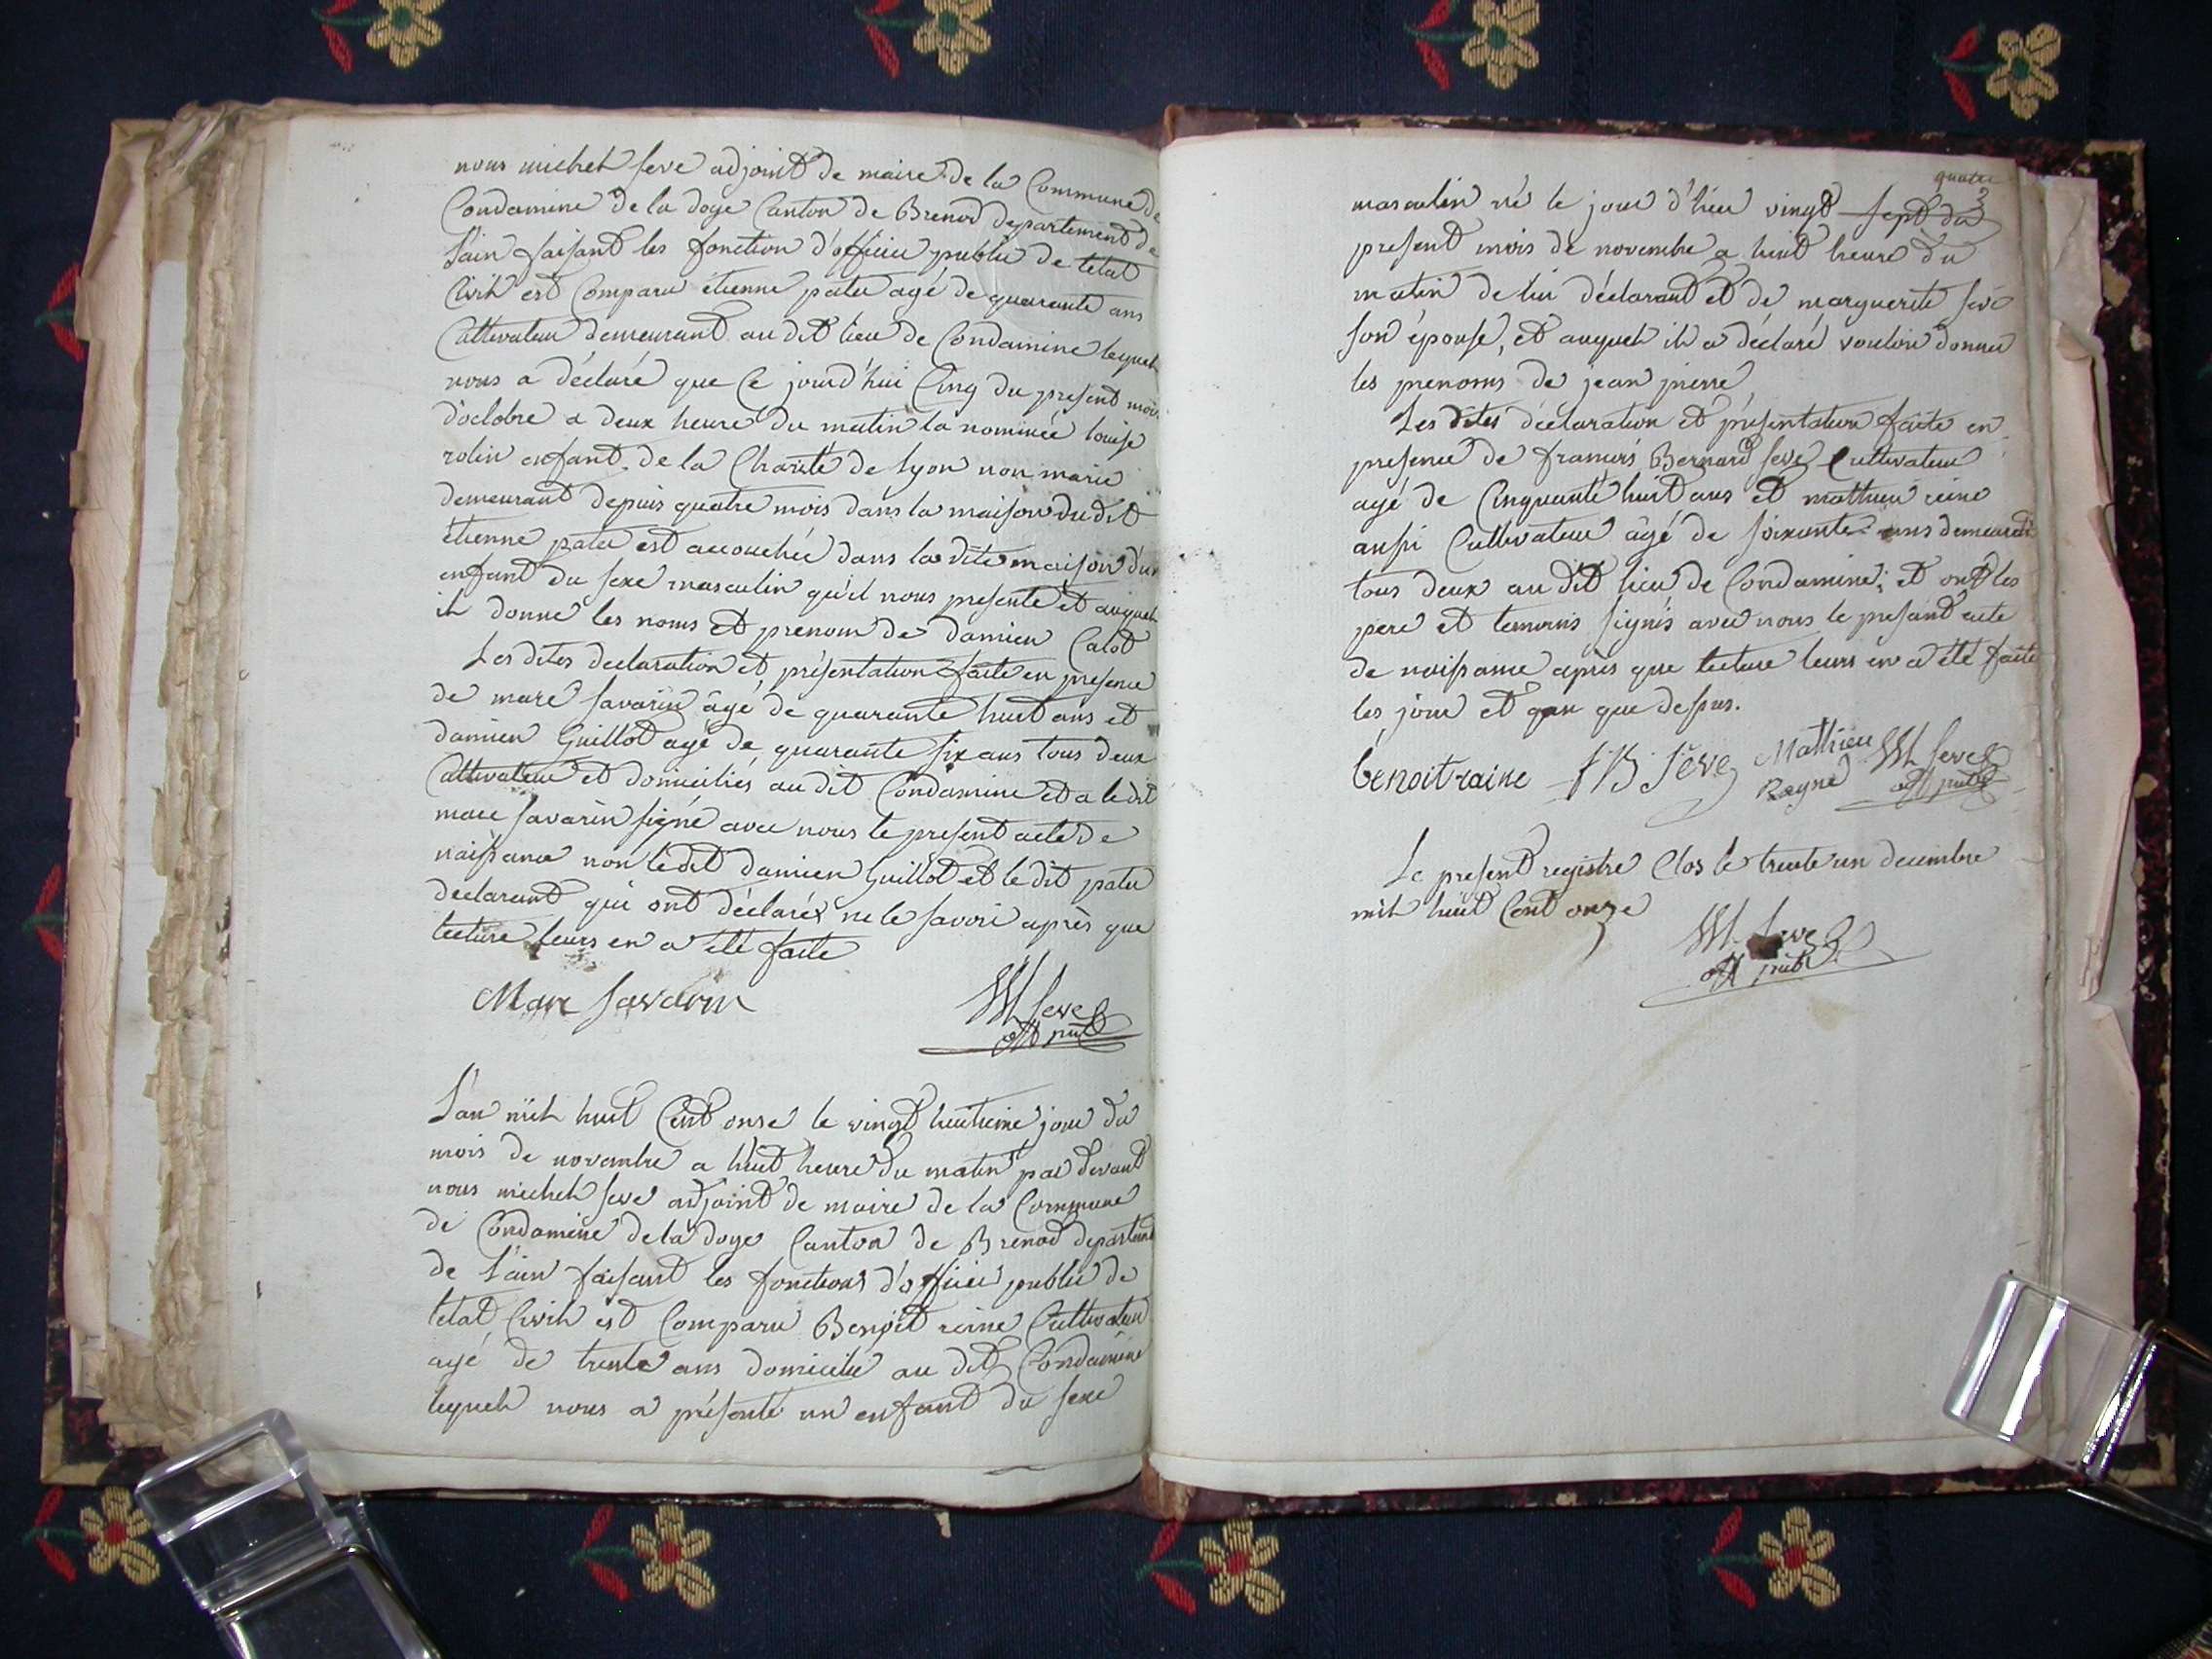 nous michel seve adjoint de maire de la Commune de
Condamine de la doye Canton de Brenod departement de
l'ain faisant les fonction d'officier public de letat
Civil est Comparu étienne patu agé de quarante ans
Cultivateur demeurant au dit lieu de Condamine lequel
nous a déclaré que Ce jourd'hui Cinq du present mois
d'octobre a deux heure du matin la nommée louise
rolin enfant de la Charité de lyon non marie
demeurant depuis quatre mois dans la maison du dit
étienne patu est accouchée dans la dite maison d'un
enfant du sexe masculin qu'il nous presente et auquel
il donne les noms et prenom de damien Calot
Les dites declaration et présentation faite en presence
de marc savarin âgé de quarante huit ans et
damien Guillot agé de quarante six ans tous deux
Cultivateur et domiciliés au dit Condamine et a ledit
marc savarin signé avec nous le present acte de
naissance non ledit damien Guillot et le dit patu
declarant qui ont déclarés ne le savoir après que
lecture leurs en a été faite
Marc Savarin
M Seve
adjoint
L'an mil huit Cent onse le vingt huitieme jour du
mois de novembre a huit heure du matin par devant
nous michel seve adjoint de maire de la Commune
de Condamine de la doye Canton de Brenod departement
de l'ain faisant les fonctions d'officier public de
letat Civil est Comparu Benoit reine Cultivateur
agé de trente ans domicilié au dit Condamine
lequel nous a présenté un enfant du sexe
quatre
3
masculin né le jour d'hier vingt sept du
present mois de novembre a huit heure du
matin de lui déclarant et de marguerite seve
son épouse, et auquel il a déclaré vouloir donner
les prenoms de jean pierre
Les dites déclaration et présentation faite en
presence de francois Bernard seve Cultivateur
agé de Cinquante huit ans et mathieu reine
aussi Cultivateur âgé de soixante ans demeurant
tous deux au dit lieu de Condamine; et ont les
pere et temoins signés avec nous le present acte
de naissance après que lecture leurs en a été faite
les jour et an que dessus.
benoit raine fB Seve Mathieu M Seve
Rayne adjoint
Le present registre Clos le trente un decembre
mil huit Cent onze
M Seve
adjoint